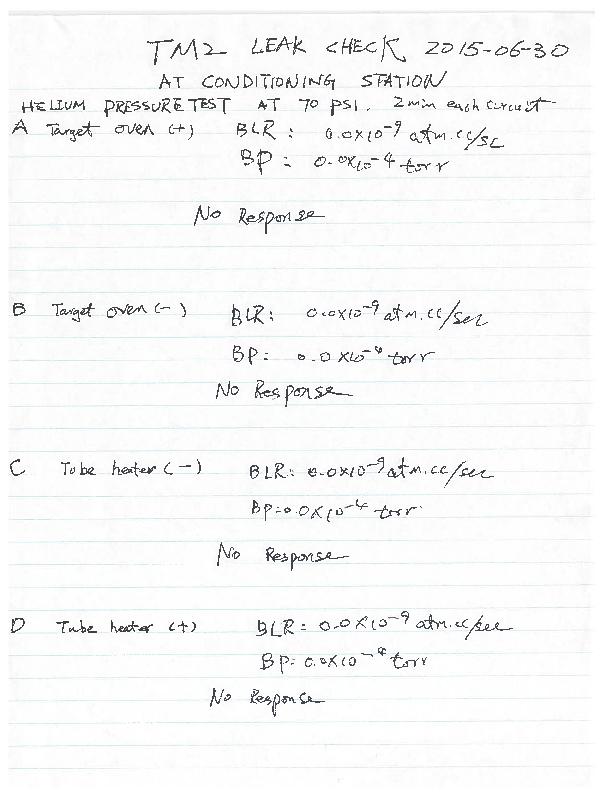 TM2 LEAK CHECK 2015-06-30
AT CONDITIONING STATION
HELIUM PRESSURE TEST AT 70 PSI. 2 min each circuit
A Target oven (+) BLR: 0.0x10⁻⁹ atm.cc/sec
BP = 0.0x10⁻⁴ torr
No Response
B Target oven (-) BLR: 0.0x10⁻⁹ atm.cc/sec
BP: 0.0x10⁻⁴ torr
No Response
C Tube heater (-) BLR: 0.0x10⁻⁹ atm.cc/sec
BP=0.0x10⁻⁴ torr
No Response
D Tube heater (+) BLR: 0.0x10⁻⁹ atm.cc/sec
BP: 0.0x10⁻⁴ torr
No Response